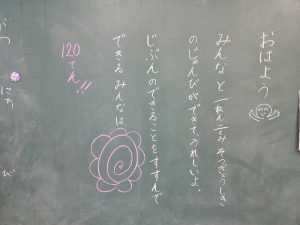 おはよう
みんなと一ねん二くみそつぎょうしき
のじゅんびができて、うれしいよ。
じぶんのできることをすすんで
できるみんなは、
120てん!!